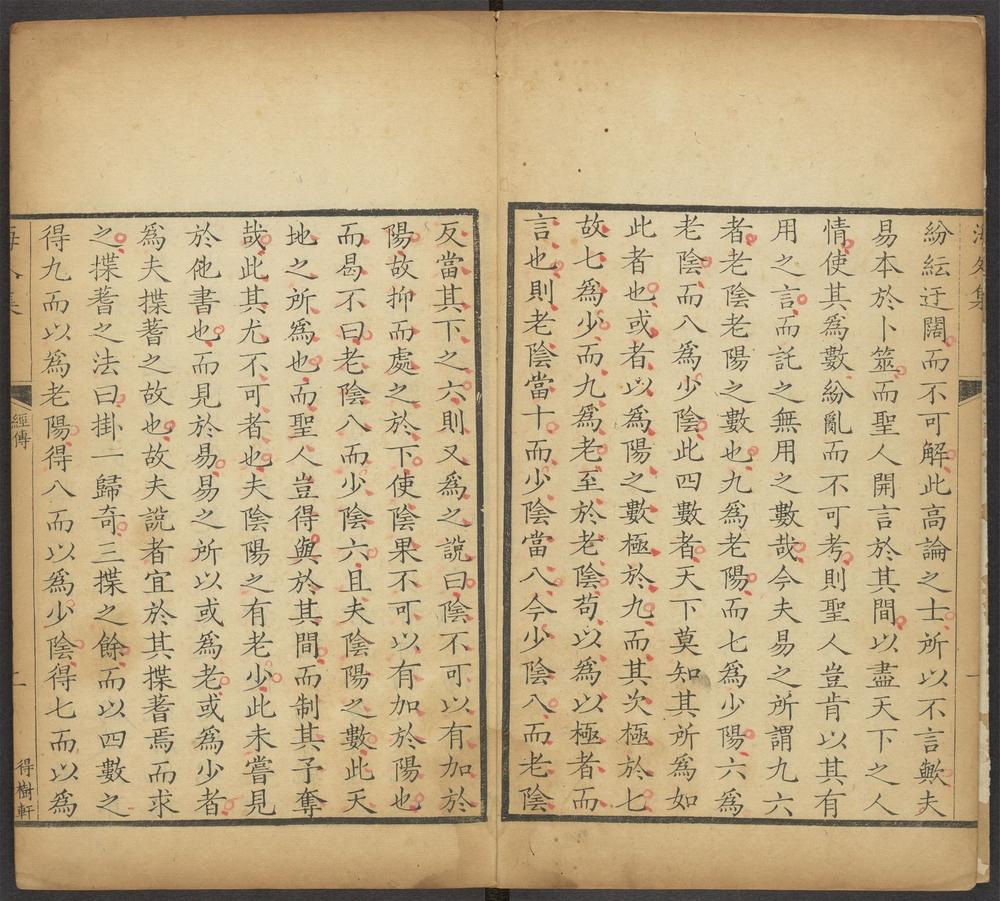 紛紜迂闊而不可解此高論之士所以不言歟夫
易本於卜筮而聖人開言於其間以盡天下之人
情使其為數紛亂而不可考則聖人豈肯以其有
用之言而託之無用之數哉今夫易之所謂九六
者老陰老陽之數也九為老陽而七為少陽六為
老陰而八為少陰此四數者天下莫知其所為如
此者也或者以為陽之數極於九而其次極於七
故七為少而九為老至於老陰苟以為以極者而
言也則老陰當十而少陰當八今少陰八而老陰
反當其下之六則又為之說曰陰不可以有加於
陽故抑而處之於下使陰果不可以有加於陽也
而曷不曰老陰八而少陰六且夫陰陽之數此天
地之所為也而聖人豈得與於其間而制其予奪
哉此其尤不可者也夫陰陽之有老少此未嘗見
於他書也而見於易易之所以或為老或為少者
為夫揲蓍之故也故夫說者宜於其揲蓍焉而求
之揲蓍之法曰掛一歸奇三揲之餘而以四數之
得九而以為老陽得八而以為少陰得七而以為
經傳
二
得樹軒